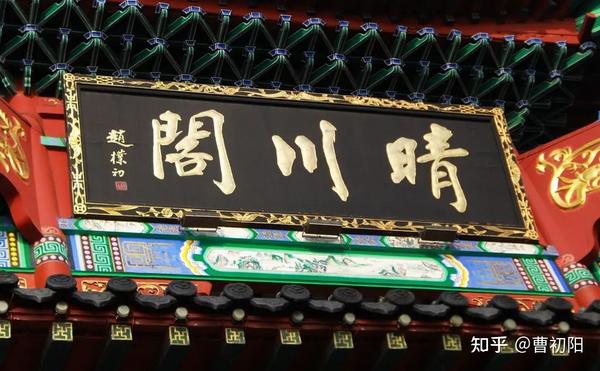 晴川閣
趙樸初
知乎 @曹初阳